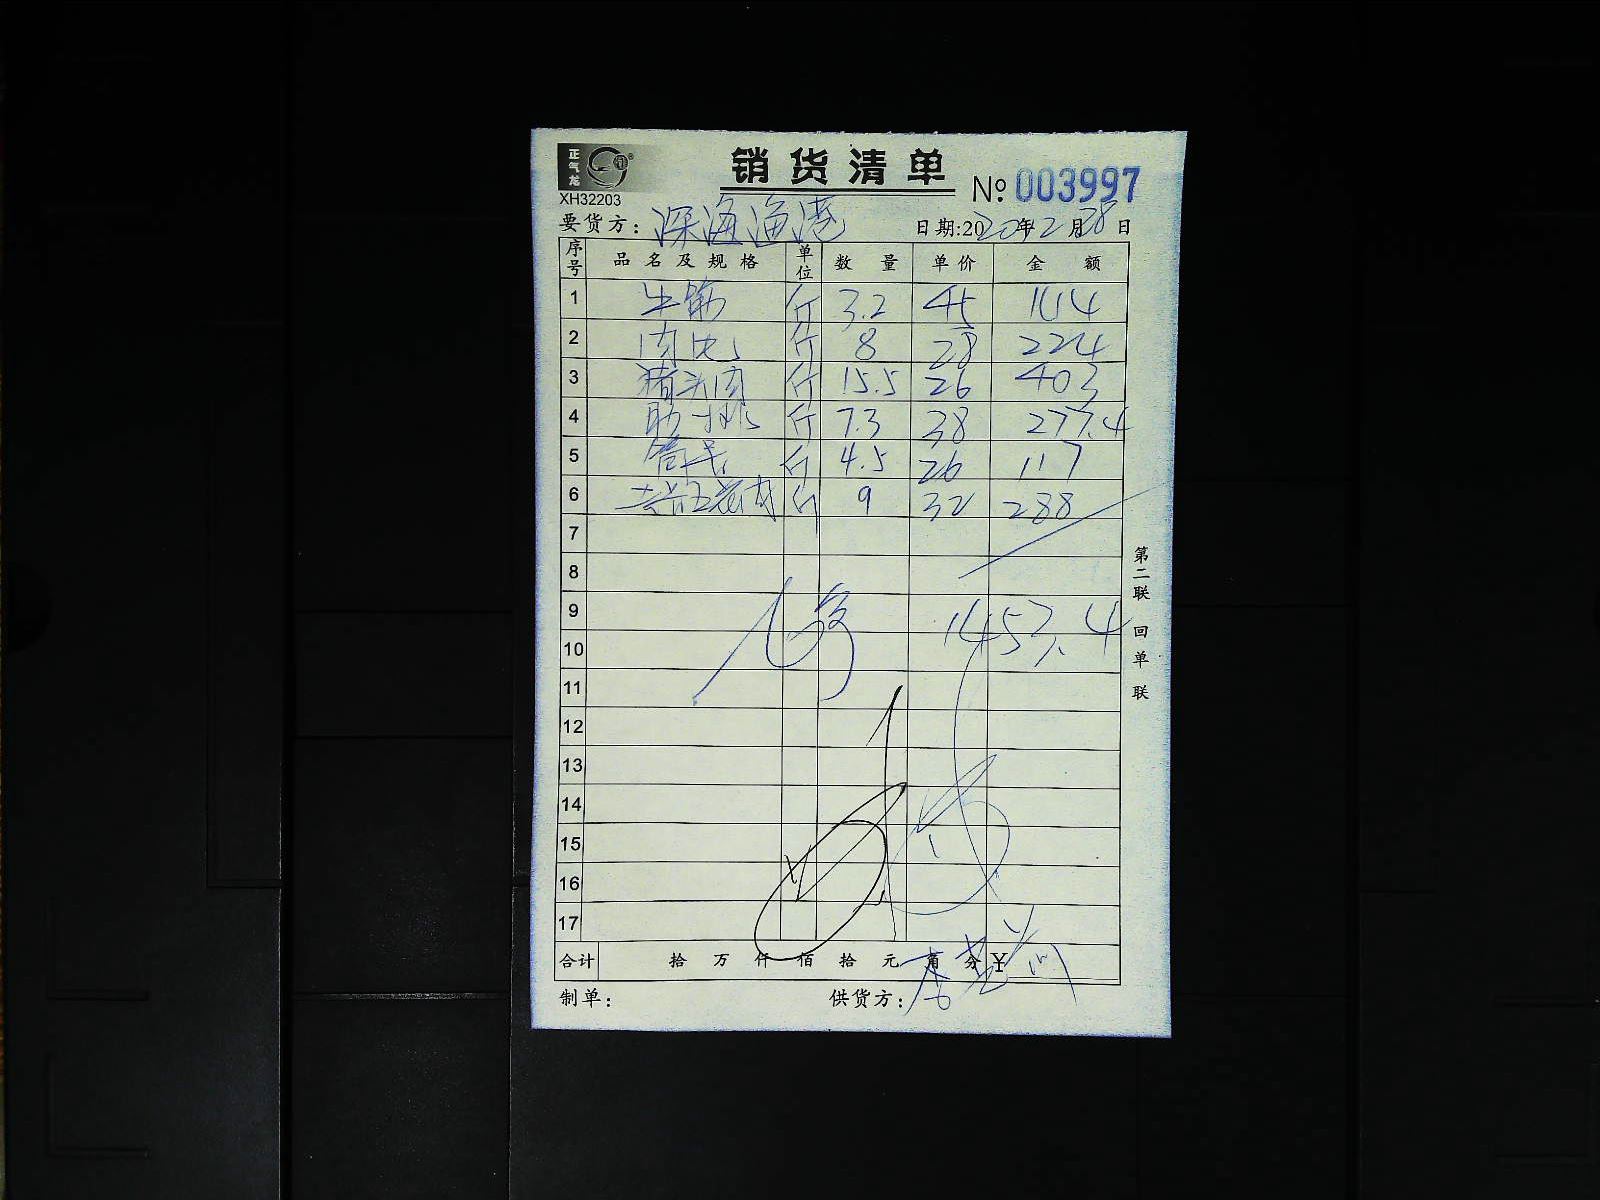 正气龙
XH32203
销货清单
№: 003997
要货方: 深海渔港 日期:2020年12月28日
序号 品名及规格 单位 数量 单价 金额
1 牛筋 斤 3.2 45 144
2 肉皮 斤 8 28 224
3 猪头肉 斤 15.5 26 403
4 肋排 斤 7.3 38 277.4
5 筒骨 斤 4.5 26 117
6 五花肉 斤 9 32 288
7
8
9 1453.4
10
11
12
13
14
15
16
17
合计 拾 万 仟 佰 拾 元 角 分 ¥
制单: 供货方:
第二联 回单联